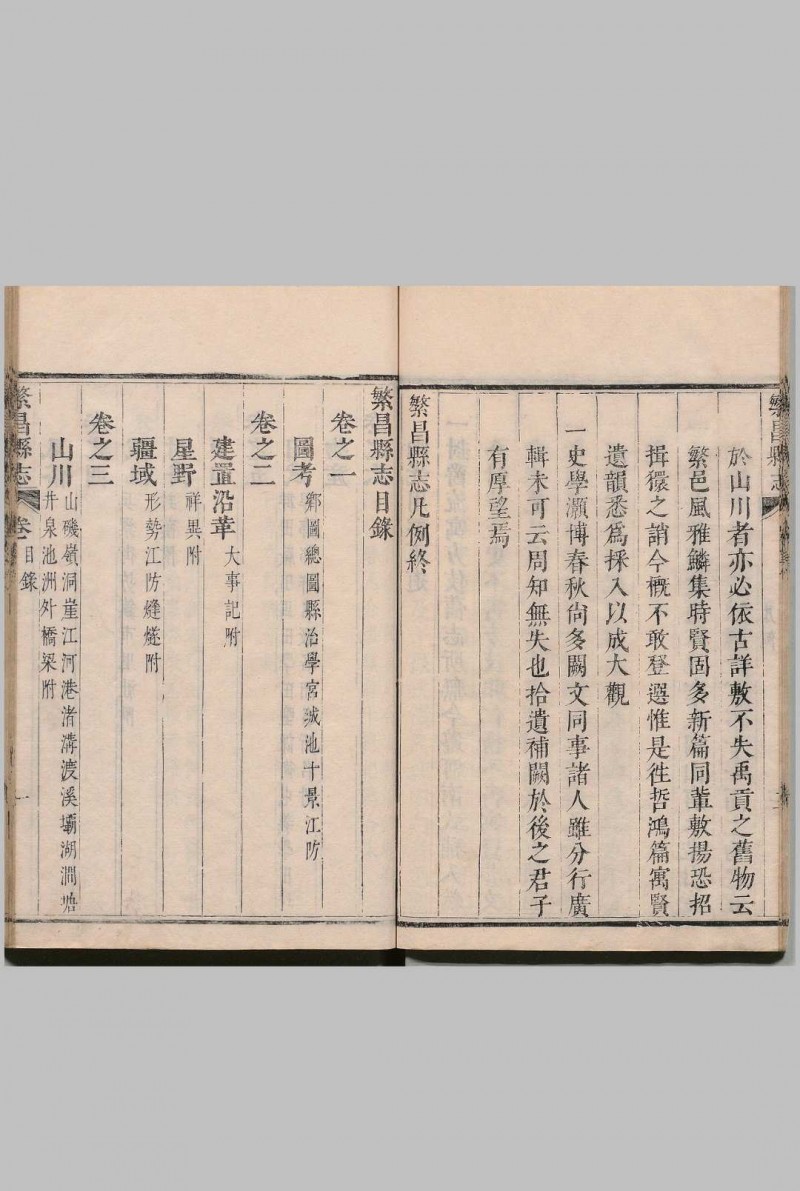 繁昌縣志
於山川者亦必依古詳敷不失禹貢之舊物云
繁邑風雅鱗集時賢固多新篇同輩敷揚恐招
揖獧之誚今概不敢登選惟是徃哲鴻篇寓賢
遺韻悉為採入以成大觀
一史學灝博春秋尚多闕文同事諸人雖分行廣
輯未可云周知無失也拾遺補闕於後之君子
有厚望焉
繁昌縣志凡例終
繁昌縣志目錄
卷之一
圖考 鄉圖總圖縣治學宮城池十景江防
卷之二
建置沿革 大事記附
星野 祥異附
疆域 形勢江防縫燧附
卷之三
山川 山磯嶺洞崖江河港渚溝渡溪壩湖澗塘
井泉池洲外橋梁附
繁昌縣志 卷 目錄 一